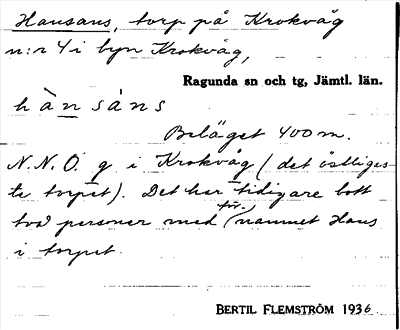 Hansans, torp på Krokvåg
n:r 4 i byn Krokvåg,
Ragunda sn och tg, Jämtl. län.
hànsáns
Beläget 400 m.
N.N.Ö. g i Krokvåg (det östliges-
te torpet). Det har tidigare bott
två personer med för-(namnet Hans
i torpet.
BERTIL FLEMSTRÖM 1936